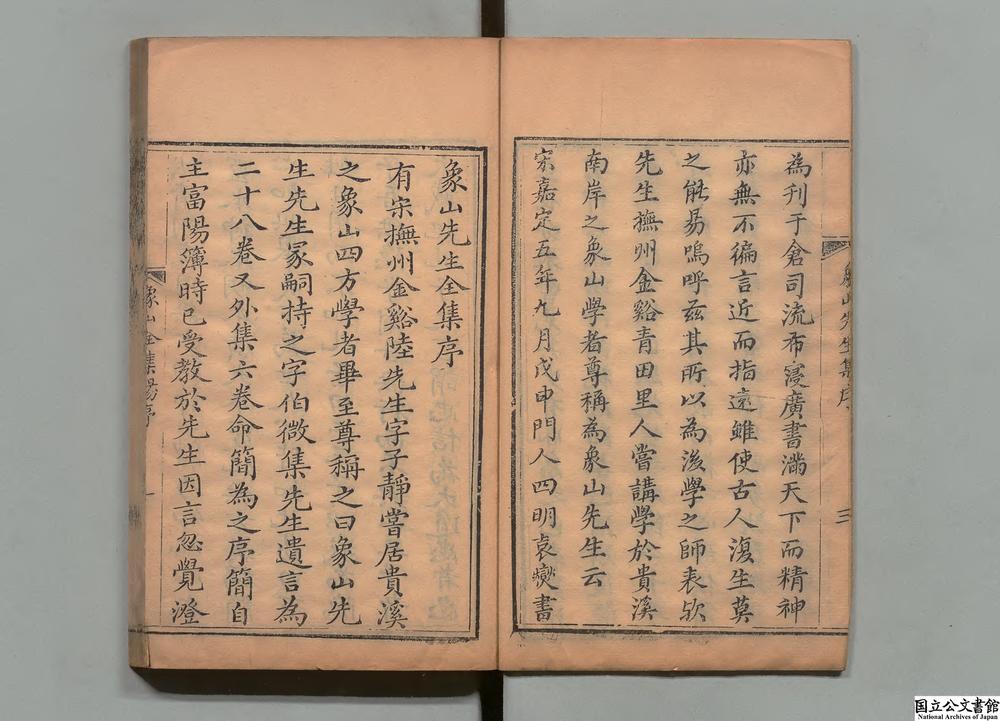 為刊于倉司流布寖廣書滿天下而精神
亦無不徧言近而指遠雖使古人復生莫
之能易嗚呼茲其所以為後學之師表歟
先生撫州金谿青田里人嘗講學於貴溪
南岸之象山學者尊稱為象山先生云
宋嘉定五年九月戊申門人四明袁燮書
象山先生全集序
有宋撫州金谿陸先生字子靜嘗居貴溪
之象山四方學者畢至尊稱之曰象山先
生先生冢嗣持之字伯微集先生遺言為
二十八卷又外集六卷命簡為之序簡自
主富陽簿時已受教於先生因言忽覺澄
象山全集楊序
一
国立公文書館
National Archives of Japan